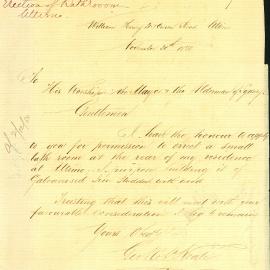 Erection of Bathroom
William Henry St
November 30th
To
His Worship the Mayor & the Aldermen of Sydney
Gentlemen
I have the honour to apply
to you for permission to erect a small
bath room at the rear of my residence
at Ultimo. I propose building it of
Galvanised Iron with wood
Trusting that this will meet with your
favorable consideration I beg to remain
Yours
Geo